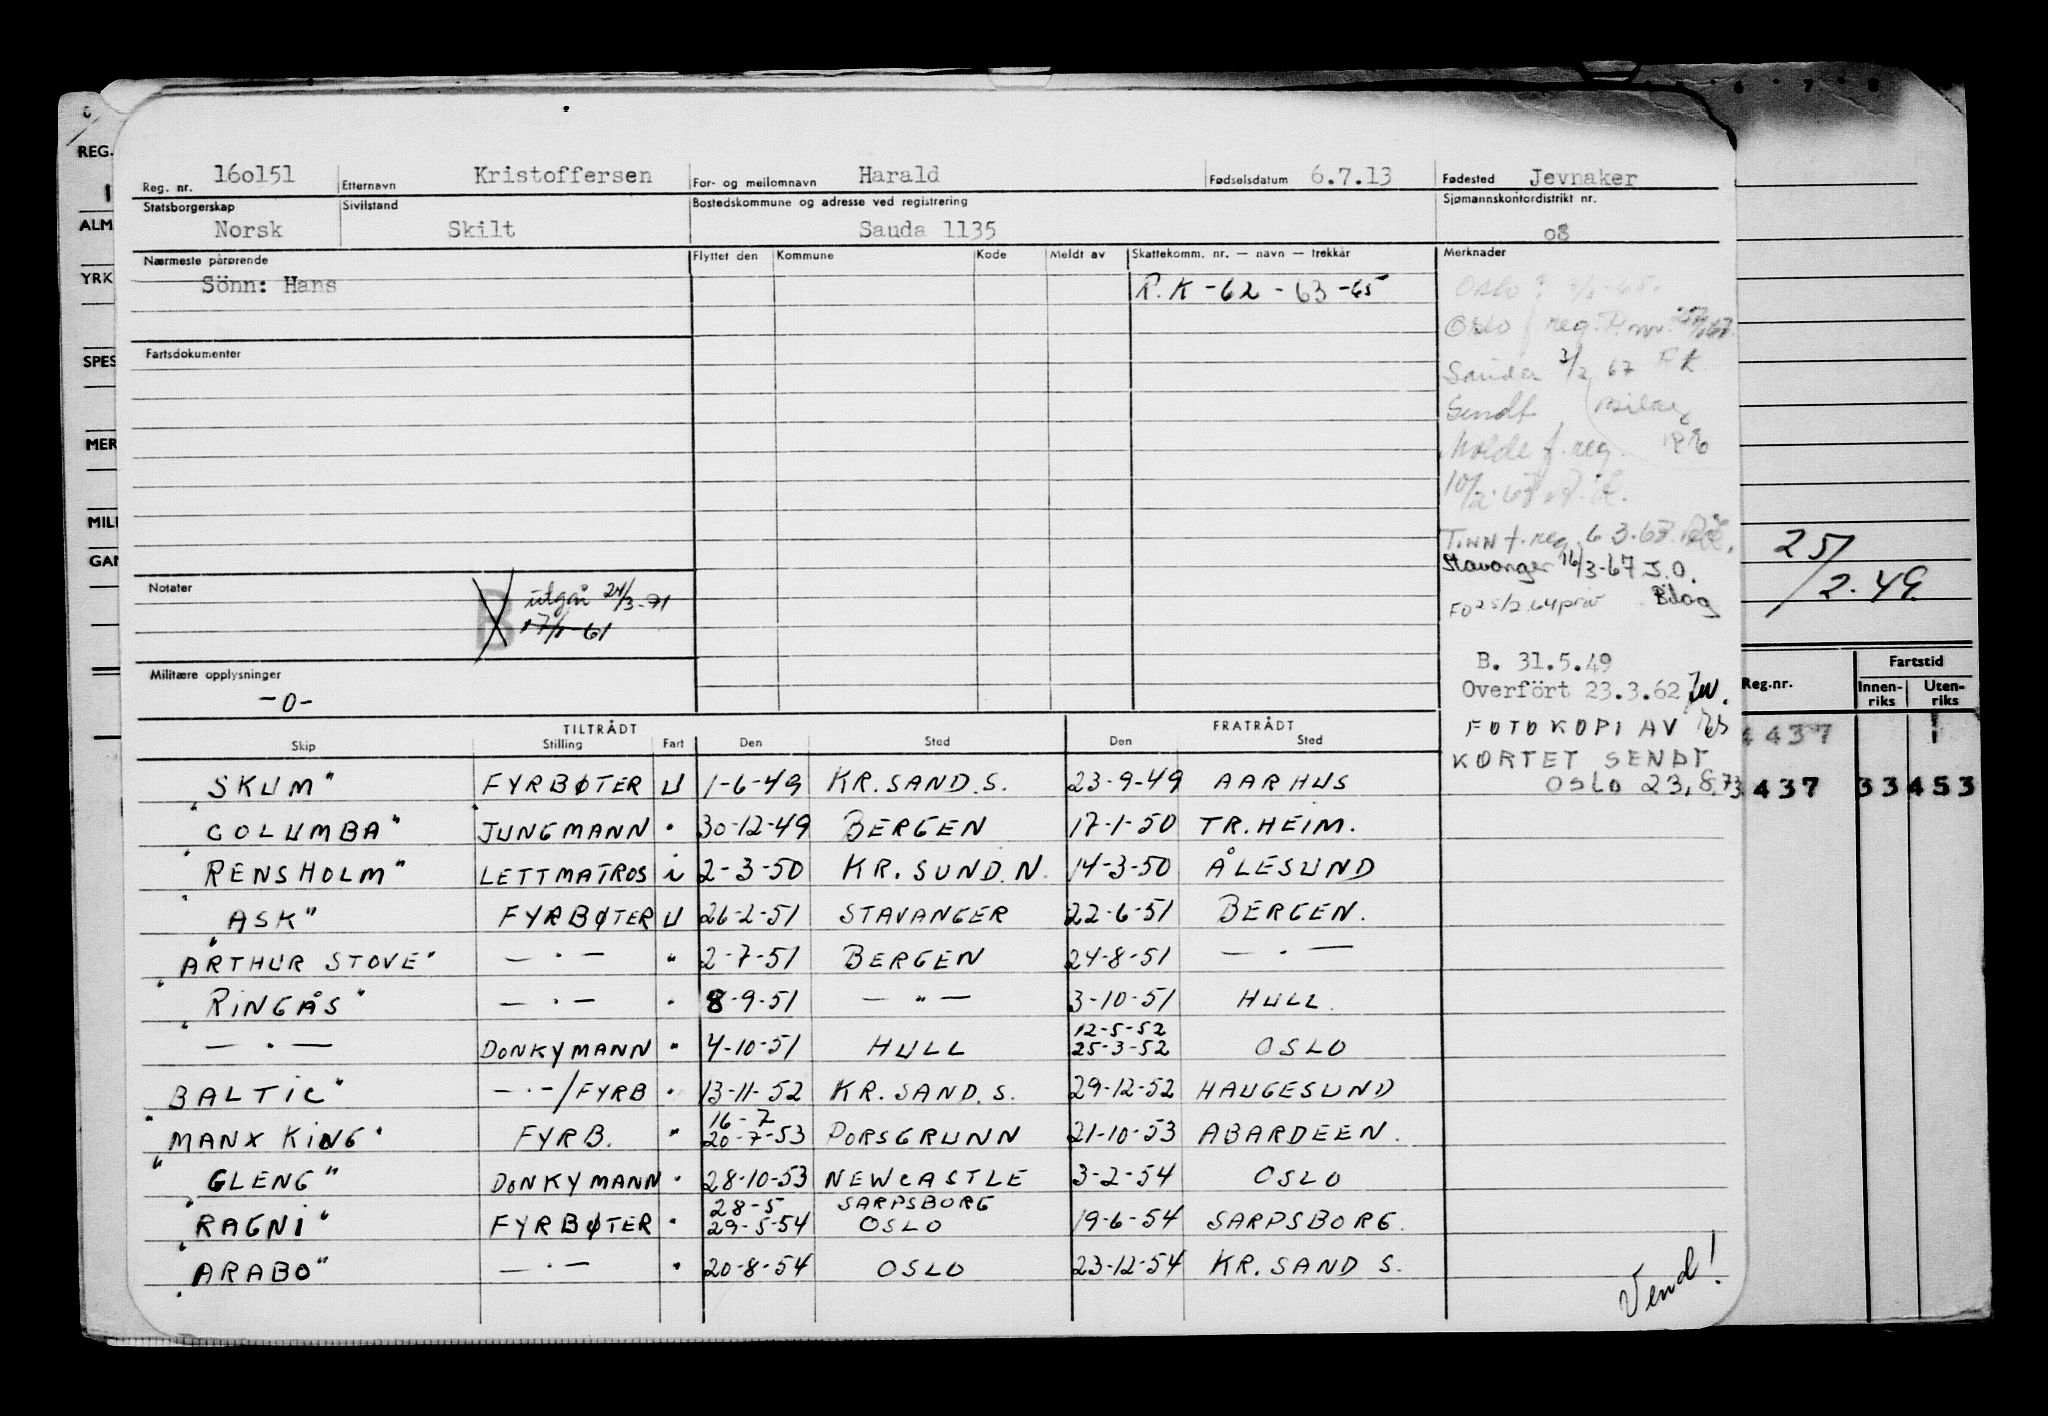 Reg. nr. 16o151 Etternavn Kristoffersen For- og mellomnavn Harald Fødselsdatum 6.7.13 Fødested Jevnaker
Statsborgerskap Sivilstand Bostedskommune og adresse ved registrering Sjømannskontordistrikt nr.
Norsk Skilt Sauda 1135 o8
Nærmeste pårørende Flyttet den Kommune Kode Meldt av Skattekomm. nr. — navn — trekkår Merknader
Sönn: Hans R.K -62 - 63 -65
Oslo
Oslo f reg.
Fartsdokumenter
Sauda 3/2 67
Sendt
Molde f. reg.
10/2.
Tinn f. reg. 6 3.67.
Stavanger 16/3-67 J.O.
Bilag
Notater
B utgår 24/3-71
FO 25/2.64
B. 31.5.49
Militære opplysninger
-0-
Overfört 23.3.62
FOTOKOPI AV
KORTET SENDT
OSLO 23,8.73
TILTRÅDT FRATRÅDT
Skip Stilling Fart Den Sted Den Sted
"SKUM" FYRBØTER U 1-6-49 KR.SAND.S. 23-9-49 AARHUS
"COLUMBA" JUNGMANN " 30-12-49 BERGEN 17-1-50 TR.HEIM.
"RENSHOLM" LETTMATROS i 2-3-50 KR.SUND.N. 14-3-50 ÅLESUND
"ASK" FYRBØTER U 26-2-51 STAVANGER 22-6-51 BERGEN.
"ARTHUR STOVE" — " — " 2-7-51 BERGEN 24-8-51 — " —
"RINGÅS" — " — " 8-9-51 — " — 3-10-51 HULL.
12-5-52
— " — DONKYMANN " 4-10-51 HULL 25-3-52 OSLO
BALTIC" — " —/FYRB " 13-11-52 KR.SAND.S. 29-12-52 HAUGESUND
16-7
"MANX KING" FYRB. " 20-7-53 PORSGRUNN 21-10-53 ABARDEEN.
"GLENG" DONKYMANN " 28-10-53 NEWCASTLE 3-2-54 OSLO
28-5 SARPSBORG
"RAGNI" FYRBØTER " 29-5-54 OSLO 19-6-54 SARPSBORG.
"ARABO" — " — " 20-8-54 OSLO 23-12-54 KR.SAND S.
Vend!
REG.
ALM
YRK
SPES
MER
MILI
GAN
25/2.49
Reg-nr. Fartstid
Innen-riks Uten-riks
4437 1
437 33 453